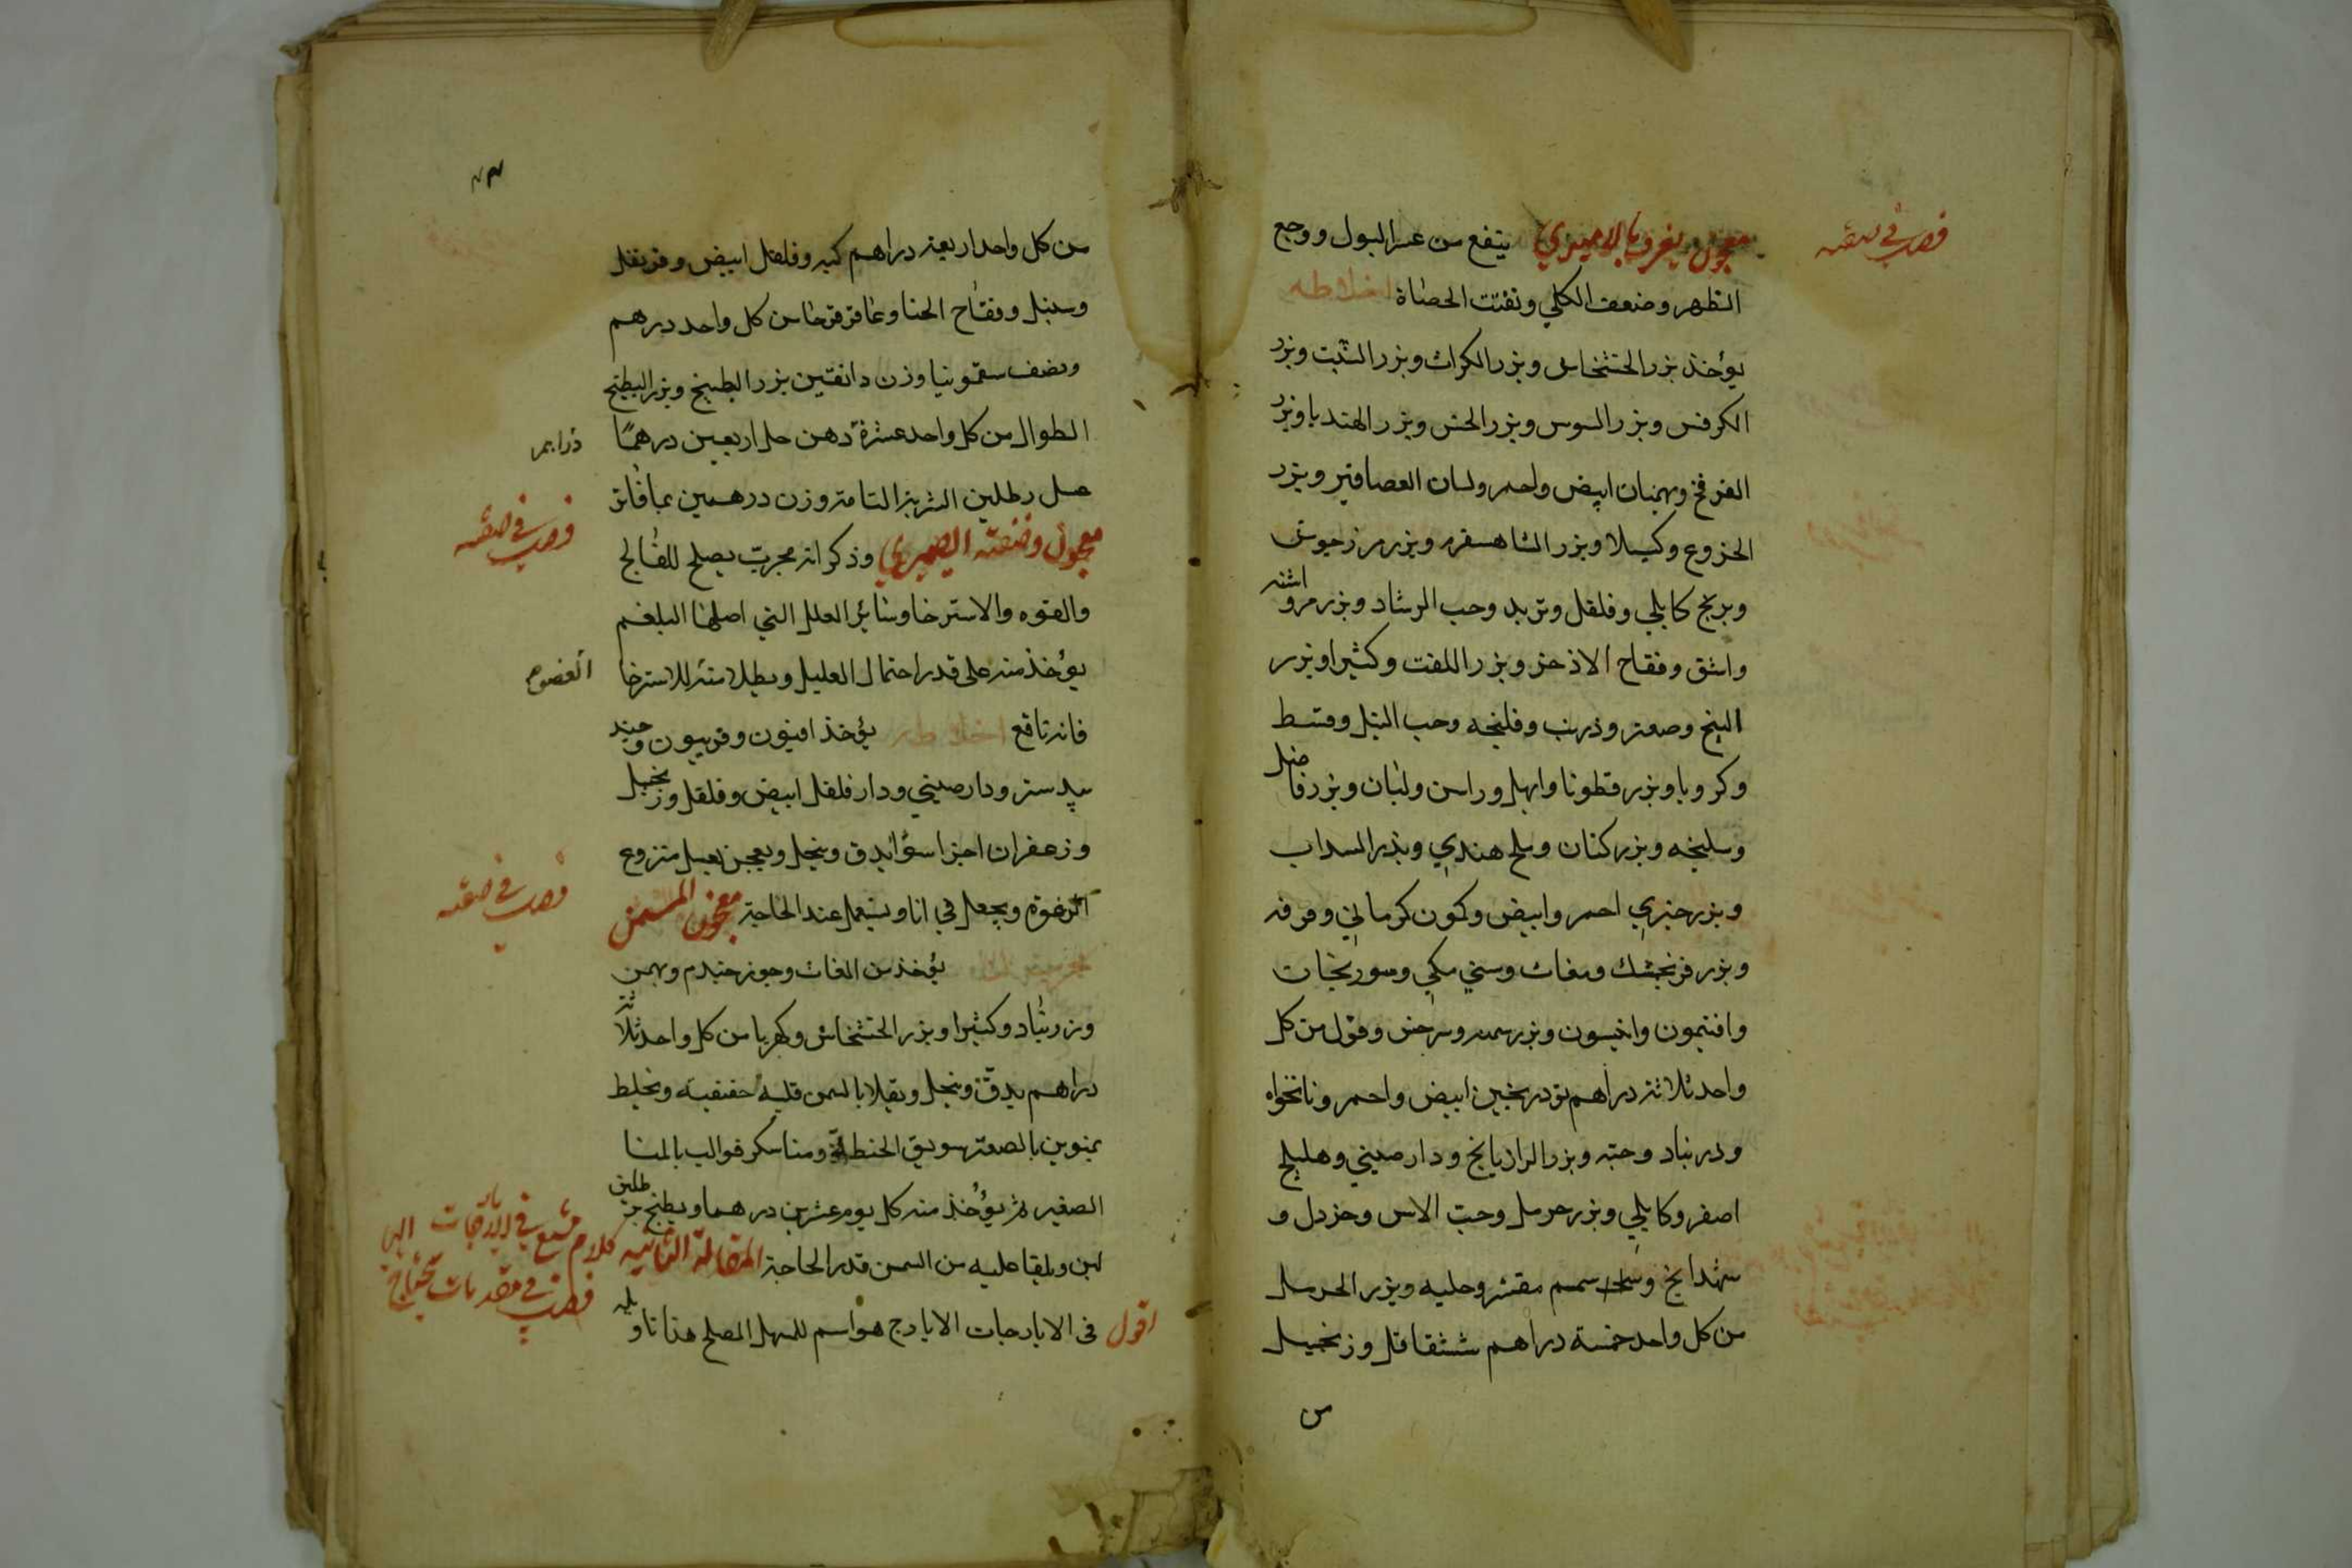 فصل في صفة
معجون يعرف بالاميري ينفع من عسر البول ووجع
الظهر وضعف الكلي وتفتت الحصاة اخلاطه
يؤخذ بزر الخشخاش وبزر الكراث وبزر الشبت وبزر
الكرفس وبزر السوس وبزر الخس وبزر الهندبا وبزر
الفرفخ وبهمنان ابيض واحمر ولسان العصافير وبزر
الخروع وكسيلا وبزر الشاهسفرم وبزر مرزجوش
وبرنج كابلي وفلفل وتربد وحب الرشاد وبزر مرو اشنه
واشق وفقاح الاذخر وبزر اللفت وكثيرا وبزر
البنج وصعتر وذرنب وفلنجه وحب النيل وقسط
وكرويا وبزر قطونا وابهل وراسن ولبان وبزر
وسليخه وبزر كتان وملح هندي وبذر السداب
وبزر خيري احمر وابيض وكمون كرماني وقرفه
وبزر فرنجمشك ومغاث وسني مكي وسورنجان
وافتيمون وانيسون وبزر سمنه وسرخس وفول من كل
واحد ثلاثة دراهم تودرنجين ابيض واحمر ونانخواه
ودرنباد وحبه وبزر الرازيانج ودارصيني وهليلج
اصفر وكابلي وبزر حرمل وحب الاس وخردل و
شهدانج سمسم مقشر وحلبه وبزر الحرمل
من كل واحد خمسة دراهم ششقاقل وزنجبيل
من
من كل واحد اربعة دراهم كبر وفلفل ابيض وقرنفل
وسنبل وفقاح الحنا وعاقرقرحا من كل واحد درهم
ونصف سقمونيا وزن دانقين بزر البطيخ وبزر البطيخ
الطوال من كل واحد عشرة دهن حل اربعين درهمًا
دراهم
عسل رطلين الشربة التامة وزن درهمين بما فاتر
فصل في صفة
معجون وصفته الصميري وذكر انه مجرب يصلح للفالج
والقوه والاسترخا وسائر العلل التي اصلها البلغم
يؤخذ منه على قدر احتمال العليل ويطلا منه للاسترخا
العضو
فانه نافع اخلاطه يؤخذ افيون وفربيون وجند
بيدستر ودارصيني ودارفلفل ابيض وفلفل وزنجبيل
وزعفران اجزا سوا يدق وينخل ويعجن بعسل منزوع
فصل في صفة
الرغوه ويجعل في انا ويستعمل عند الحاجة معجون المسمن
يؤخذ من المغاث وجوز جندم وبهمن
وزرنباد وكثيرا وبزر الخشخاش وكهربا من كل واحد ثلاثة
دراهم يدق وينخل ويقلا بالسمن قليه خفيفيه ويخلط
بمنوين بالصعتر سويق الحنطة ومنا سكر قوالب بالمنا
الصغير ثم يؤخذ منه كل يوم عشرين درهما ويطبخ برطلين
لبن ويلقا عليه من السمن قدر الحاجة المقالة الثانيه كلام مشبع في الايارجات التي
فصل في مقدمات يحتاج
اقول في الايارجات الايارج هو اسم للمسهل المصلح هذا تاويله